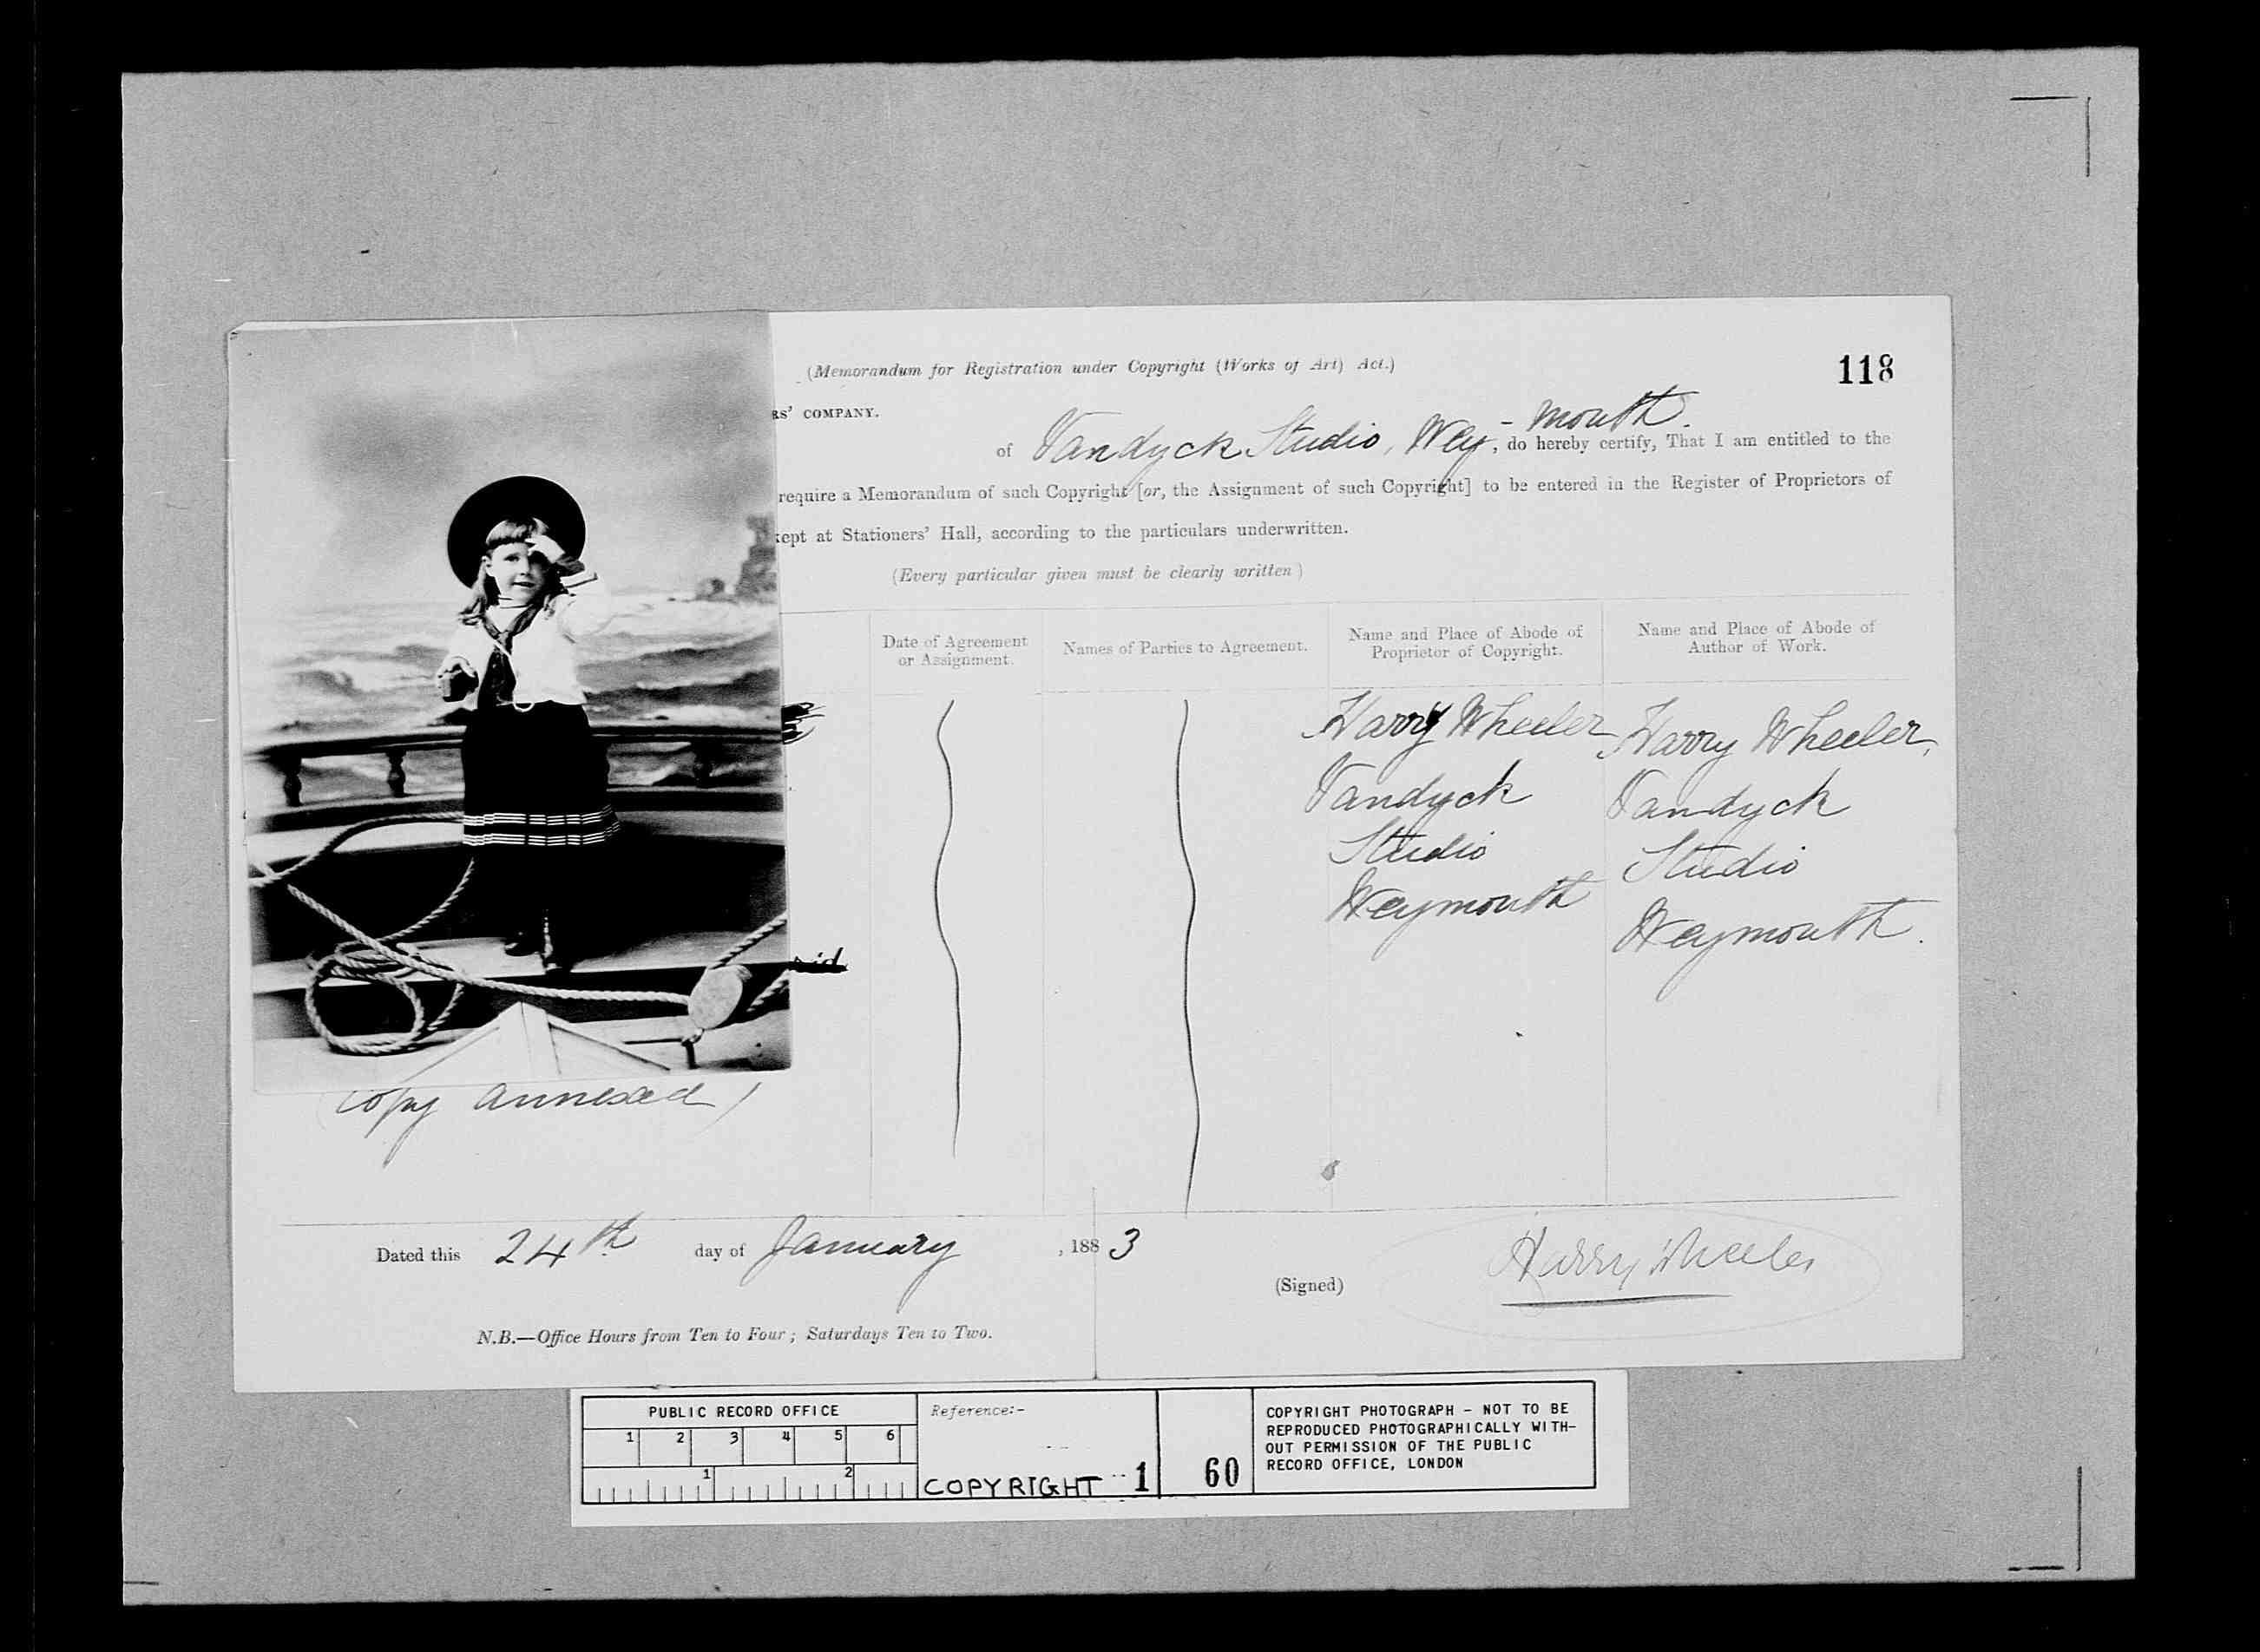 (Memorandum for Registration under Copyright (Works of Art) Act.)
118
RS' COMPANY.
of Vandyck Studio, Wey-mouth., do hereby certify, That I am entitled to the
require a Memorandum of such Copyright [or, the Assignment of such Copyright] to be entered in the Register of Proprietors of
kept at Stationers' Hall, according to the particulars underwritten.
(Every particular given must be clearly written)
Date of Agreement
or Assignment.
Names of Parties to Agreement.
Name and Place of Abode of
Proprietor of Copyright.
Name and Place of Abode of
Author of Work.
Harry Wheeler
Vandyck
Studio
Weymouth
Harry Wheeler,
Vandyck
Studio
Weymouth.
(Copy annexed)
Dated this 24th day of January, 1883
(Signed) Harry Wheeler
N.B.—Office Hours from Ten to Four; Saturdays Ten to Two.
PUBLIC RECORD OFFICE
1 2 3 4 5 6
1 2
Reference:-
COPYRIGHT 1
60
COPYRIGHT PHOTOGRAPH - NOT TO BE
REPRODUCED PHOTOGRAPHICALLY WITH-
OUT PERMISSION OF THE PUBLIC
RECORD OFFICE, LONDON